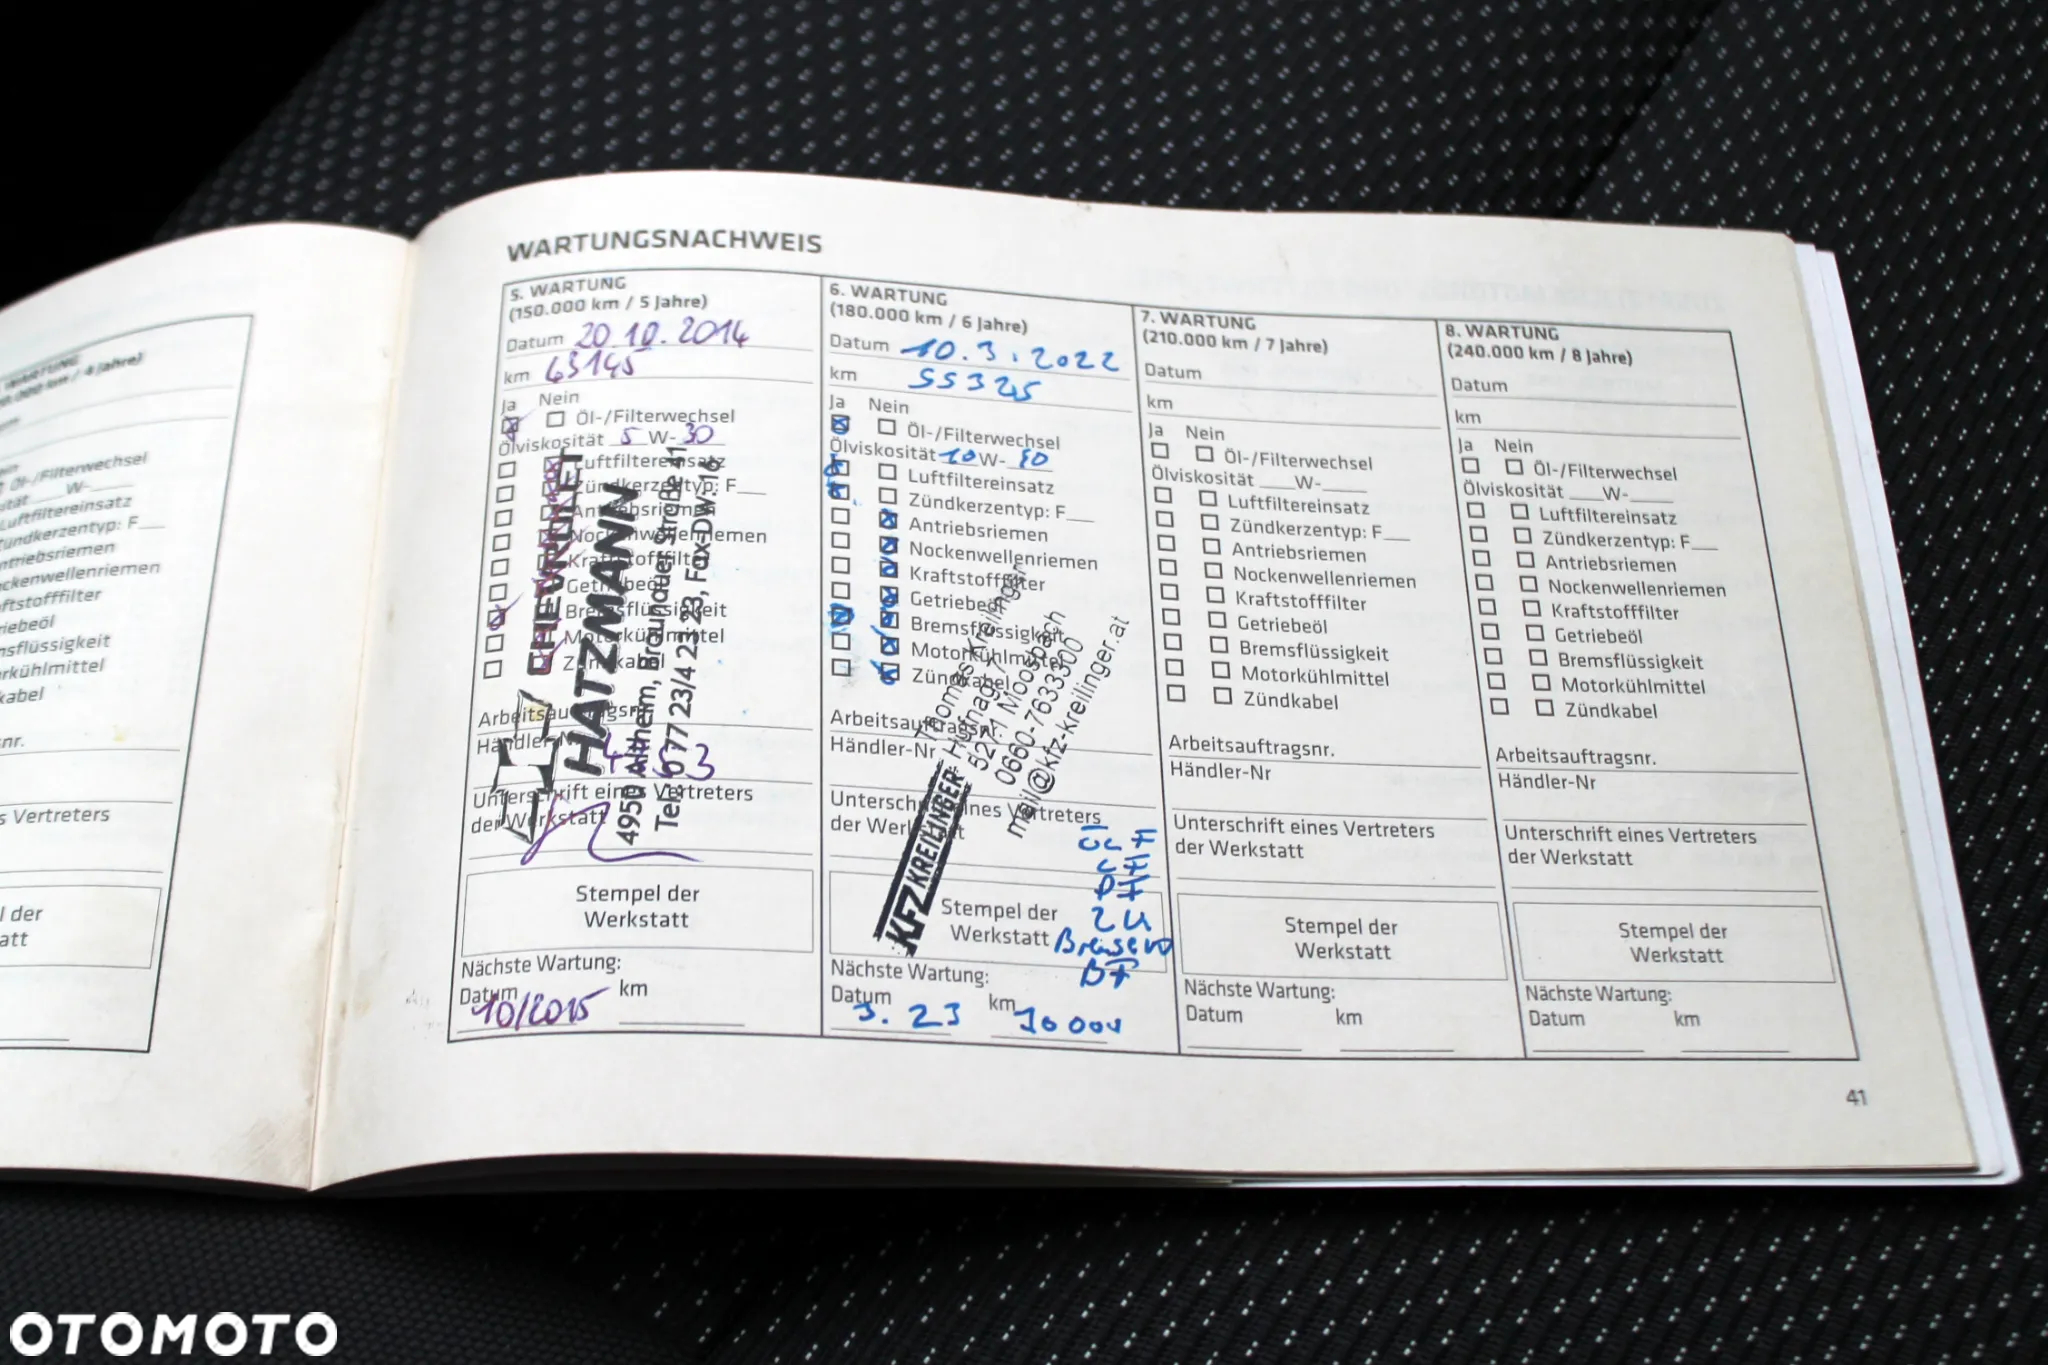 WARTUNG
km / 4 Jahre)
Öl-/Filterwechsel
W-
Luftfiltereinsatz
Zündkerzentyp: F
Antriebsriemen
Nockenwellenriemen
Vertreters
WARTUNGSNACHWEIS
5. WARTUNG
(150.000 km / 5 Jahre)
Datum 20.10.2014
km 43145
Ja Nein
Öl-/Filterwechsel
Ölviskosität 5 W- 30
Luftfiltereinsatz
Zündkerzentyp: F
Antriebsriemen
Nockenwellenriemen
Kraftstofffilter
Getriebeöl
Bremsflüssigkeit
Motorkühlmittel
Zündkabel
Arbeitsauftragsnr.
Händler-Nr
Unterschrift eines Vertreters
der Werkstatt
CHEVROLET
HATZMANN
4950 Altheim, Braunauer Straße 41
Tel. 0 77 23/4 23 23, Fax-DW: 16
Stempel der
Werkstatt
Nächste Wartung:
Datum km
10/2015
6. WARTUNG
(180.000 km / 6 Jahre)
Datum 10.3.2022
km 55325
Ja Nein
Öl-/Filterwechsel
Ölviskosität 10 W- 40
Luftfiltereinsatz
Zündkerzentyp: F
Antriebsriemen
Nockenwellenriemen
Kraftstofffilter
Getriebeöl
Bremsflüssigkeit
Motorkühlmittel
Zündkabel
Arbeitsauftragsnr.
Händler-Nr
Unterschrift eines Vertreters
der Werkstatt
KFZ KREILINGER
Thomas Kreilinger
Hufnagl
5271 Moosbach
0660-7633300
mail@kfz-kreilinger.at
Stempel der
Werkstatt
BF
Nächste Wartung:
Datum km
3. 23
7. WARTUNG
(210.000 km / 7 Jahre)
Datum
km
Ja Nein
Öl-/Filterwechsel
Ölviskosität W-
Luftfiltereinsatz
Zündkerzentyp: F
Antriebsriemen
Nockenwellenriemen
Kraftstofffilter
Getriebeöl
Bremsflüssigkeit
Motorkühlmittel
Zündkabel
Arbeitsauftragsnr.
Händler-Nr
Unterschrift eines Vertreters
der Werkstatt
Stempel der
Werkstatt
Nächste Wartung:
Datum km
8. WARTUNG
(240.000 km / 8 Jahre)
Datum
km
Ja Nein
Öl-/Filterwechsel
Ölviskosität W-
Luftfiltereinsatz
Zündkerzentyp: F
Antriebsriemen
Nockenwellenriemen
Kraftstofffilter
Getriebeöl
Bremsflüssigkeit
Motorkühlmittel
Zündkabel
Arbeitsauftragsnr.
Händler-Nr
Unterschrift eines Vertreters
der Werkstatt
Stempel der
Werkstatt
Nächste Wartung:
Datum km
41
OTOMOTO